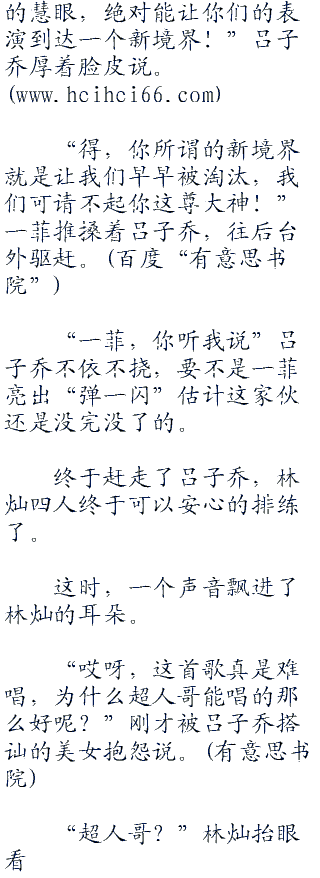 的慧眼，绝对能让你们的表
演到达一个新境界！”吕子
乔厚着脸皮说。
(www.hcihci66.com)
“得，你所谓的新境界
就是让我们早早被淘汰，我
们可请不起你这尊大神！”
一菲推搡着吕子乔，往后台
外驱赶。(百度“有意思书
院”)
“一菲，你听我说”吕
子乔不依不挠，要不是一菲
亮出“弹一闪”估计这家伙
还是没完没了的。
终于赶走了吕子乔，林
灿四人终于可以安心的排练
了。
这时，一个声音飘进了
林灿的耳朵。
“哎呀，这首歌真是难
唱，为什么超人哥能唱的那
么好呢？”刚才被吕子乔搭
讪的美女抱怨说。(有意思书
院)
“超人哥？”林灿抬眼
看